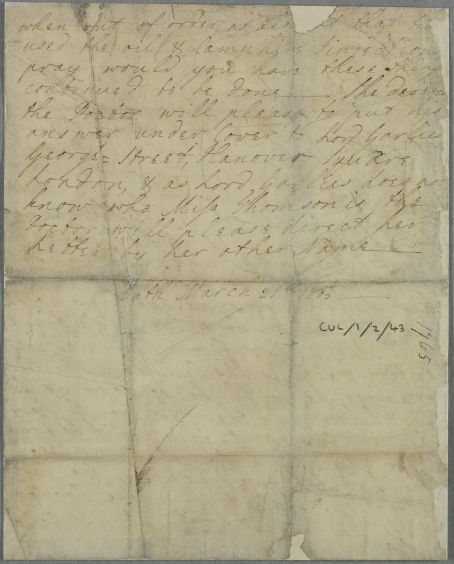 when out of order as also that he
used the oill & camphire Injections
pray would you have these things
continued to be done — She desires
the Doctor will please to put his
answer under Cover to Lord Garlies
George = Street, Hanover Square
London, & as Lord Garlies does not
know who Miss Thomson is, the
Doctor will please direct her
Letter by her other Name —
Bath March 21st 1765 —
CUL/1/2/43
1765